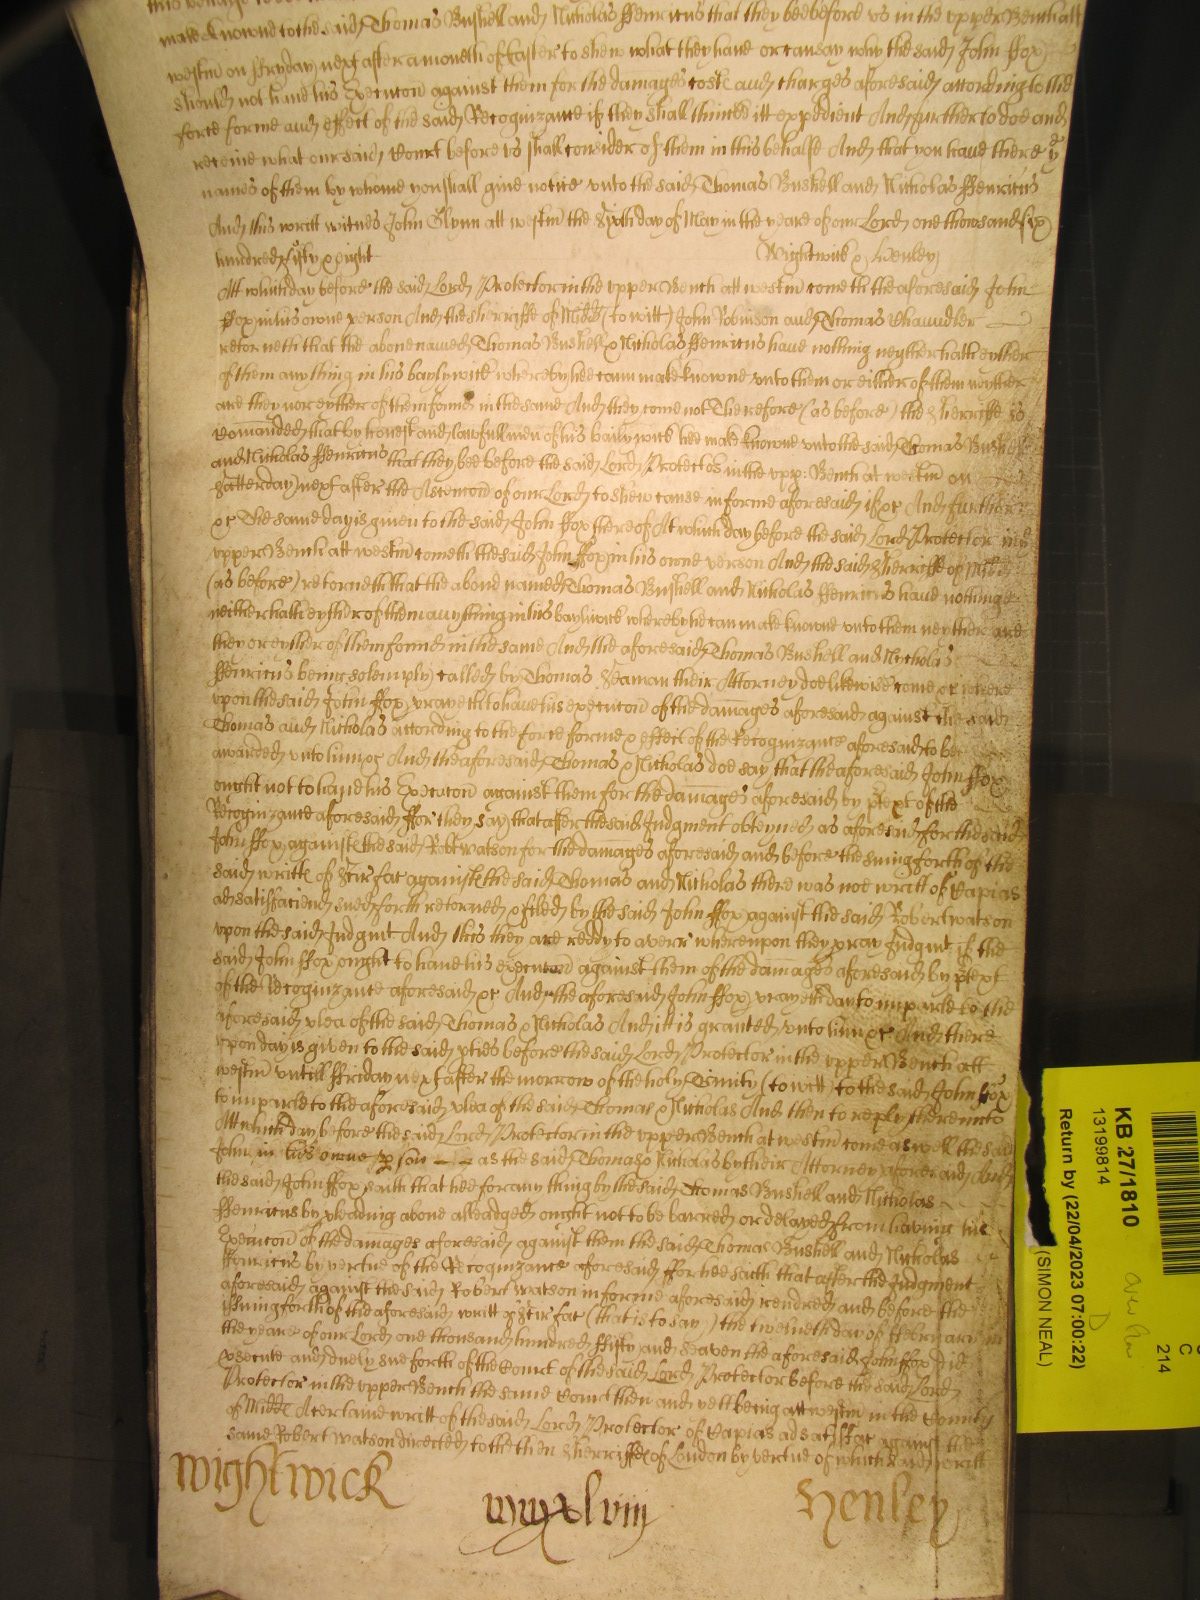 make knowne to the said Thomas Bushell and Nicholas Henricus that they bee before vs in the vpper Bench att
westm on ffryday next after a moneth of Easter to shew what they haue or can say why the said John ffox
should not haue his Execucon against them for the damages costs and charges aforesaid according to the
force forme and effect of the said Recognizance if they shall thincke itt expedient And further to doe and
receiue what our said Court before vs shall consider of them in this behalfe And that you haue there ye
names of them by whome you shall giue notice vnto the said Thomas Bushell and Nicholas Henricus
And this writt witnes John Glynn att westm the Sixth day of May in the yeare of our Lord one thowsand six
hundred fifty & eight Wightwick & Henley
Att which day before the said Lord Protector in the vpper Bench att westm cometh the aforesaid John
ffox in his owne person And the sherriffe of Midd (to witt) John Robinson and Thomas Chaundler
retorneth that the abouenamed Thomas Bushell & Nicholas Henricus haue nothing neyther hath eyther
of them any thing in his baylywick whereby hee cann make knowne vnto them or either of them neyther
are they nor eyther of them found in the same And they come not Therefore (as before) the Sherriffe is
Comanded that by honest and lawfull men of his bailywick hee make knowne vnto the said Thomas Bushell
and Nicholas Henricus that they bee before the said Lord Protector in the vpp: Bench at westm on
Satterday next after the Ascencon of our Lord to shew cause in forme aforesaid if &c And further
&c The same day is giuen to the said John ffox there &c At which day before the said Lord Protector in ye
vpper Bench att westm cometh the said John ffox in his owne person And the said Sherriffe of Midd
(as before) retorneth that the aboue named Thomas Bushell and Nicholas Henricus haue nothinge
neither hath eyther of them any thing in his baylywick whereby he can make knowne vnto them neyther are
they or eyther of them found in the same And the aforesaid Thomas Bushell and Nycholas
Henricus being solemply called by Thomas Seaman their Attorney doe likewise come &c where
vpon the said John ffox prayeth to haue his execucon of the damages aforesaid against the said
Thomas and Nicholas according to the force forme & effect of the Recognizance aforesaid to be
awarded vnto him &c And the aforesaid Thomas & Nicholas doe say that the aforesaid John ffox
ought not to haue his Execucon against them for the damages aforesaid by ptext of the
Recognizance aforesaid ffor they say that after the said Judgment obteyned as aforesaid for the said
John ffox against the said Robt watson for the damages aforesaid and before the suing forth of the
said writt of Scir fac against the said Thomas and Nicholas there was noe writt of Capias
ad satisfaciend sued forth retorned & filed by the said John ffox against the said Robert watson
vpon the said Judgmt And this they are reddy to averr wherevpon they pray Judgmt if the
said John ffox ought to haue his execucon against them of the damages aforesaid by ptext
of the Recognizance aforesaid &c And the aforesaid John ffox prayeth day to imparle to the
aforesaid plea of the said Thomas & Nicholas And itt is granted vnto him &c And there
vpon day is giuen to the said pties before the said Lord Protector in the vpper Bench att
westm vntill ffriday next after the morrow of the holy Trinity (to witt) to the said John ffox
to imparle to the aforesaid plea of the said Thomas & Nicholas And then to reply therevnto
Att which day before the said Lord Protector in the vpper Bench at westm come as well the said
John in his owne pson as the said Thomas & Nicholas by their Attorney aforesaid And
the said John ffox saith that hee for any thing by the said Thomas Bushell and Nicholas
Henricus by pleading aboue alleadged ought not to be barred or delayed from haueing his
Execucon of the damages aforesaid against them the said Thomas Bushell and Nicholas
Henricus by vertue of the Recognizance aforesaid ffor hee saith that after the Judgment
aforesaid against the said Robert watson in forme aforesaid rendred and before the
issuing forth of the aforesaid writt of Scir fac (that is to say) the twelueth day of ffebruary in
the yeare of our Lord one thousand hundred ffifty and seaven the aforesaid John ffox did
psecute and duely sue forth of the Court of the said Lord Protector before the said Lord
Protector in the vpper Bench the same Court then and yett being att westm in the County
of Midd A certaine writt of the said Lord Protector of Capias ad satisfac against the
same Robert watson directed to the then Sherriffes of London by vertue of which said writt
Wightwick Henley
KB 27/1810
13199814
Return by (22/04/2023 07:00:22)
(SIMON NEAL)
C
214
D